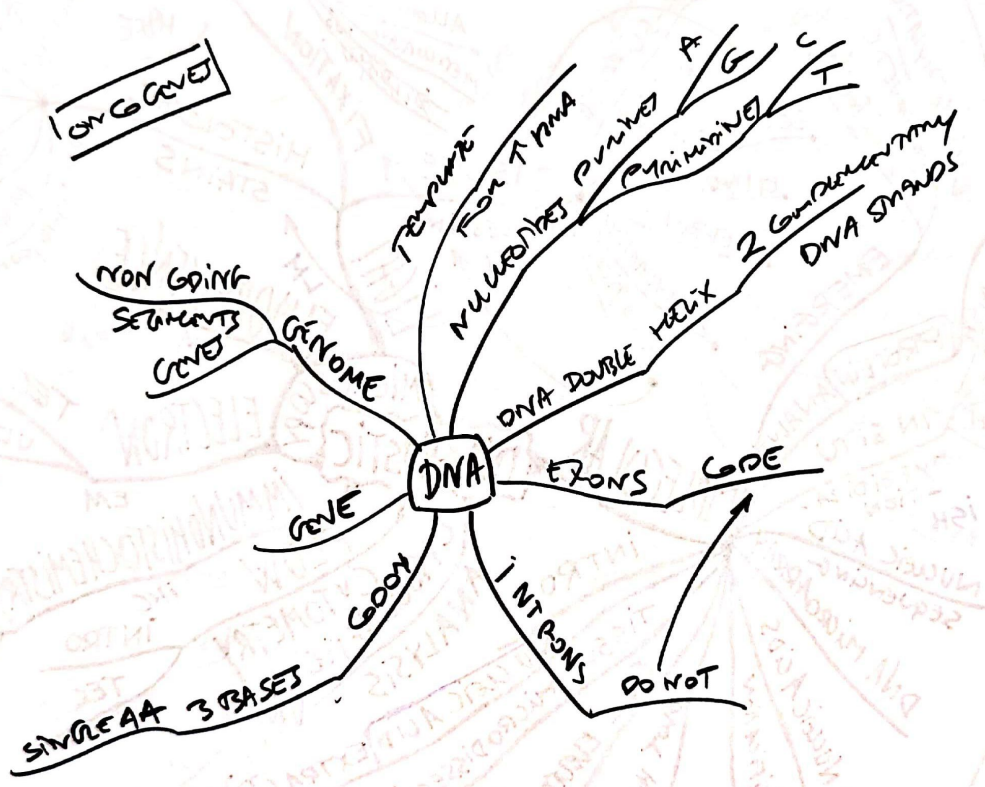 1 ONCOGENES
TEMPLATE
FOR ↑ RNA
NUCLEOTIDES
PURINES
A
G
PYRIMIDINES
C
T
DNA DOUBLE HELIX
2 COMPLEMENTARY
DNA STRANDS
EXONS
CODE
INTRONS
DO NOT
CODON
3 BASES
SINGLE AA
GENE
GENOME
NON CODING
SEGMENTS
GENES
DNA